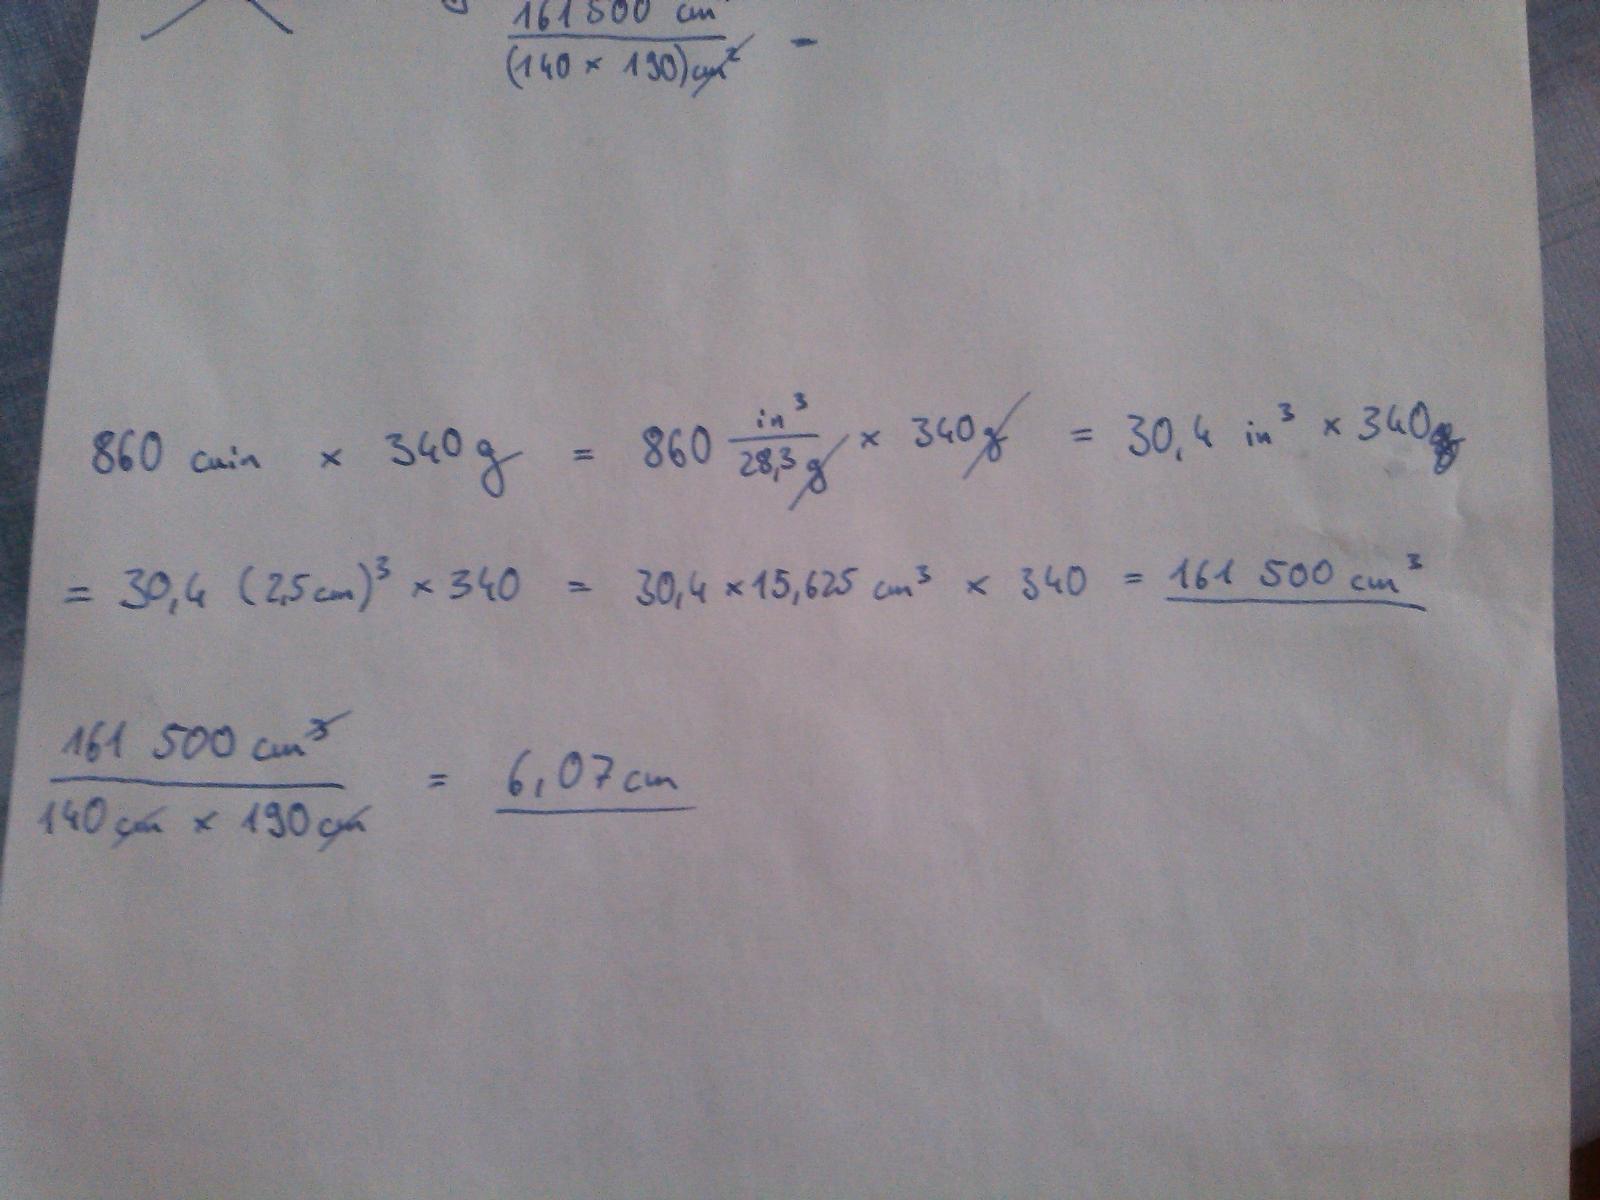 161 500 cm
(140 × 190)cm² =
860 cuin × 340g = 860 in³/28,3g × 340g = 30,4 in³ × 340
= 30,4 (2,5cm)³ × 340 = 30,4 × 15,625 cm³ × 340 = 161 500 cm³
161 500 cm³
140cm × 190cm = 6,07cm